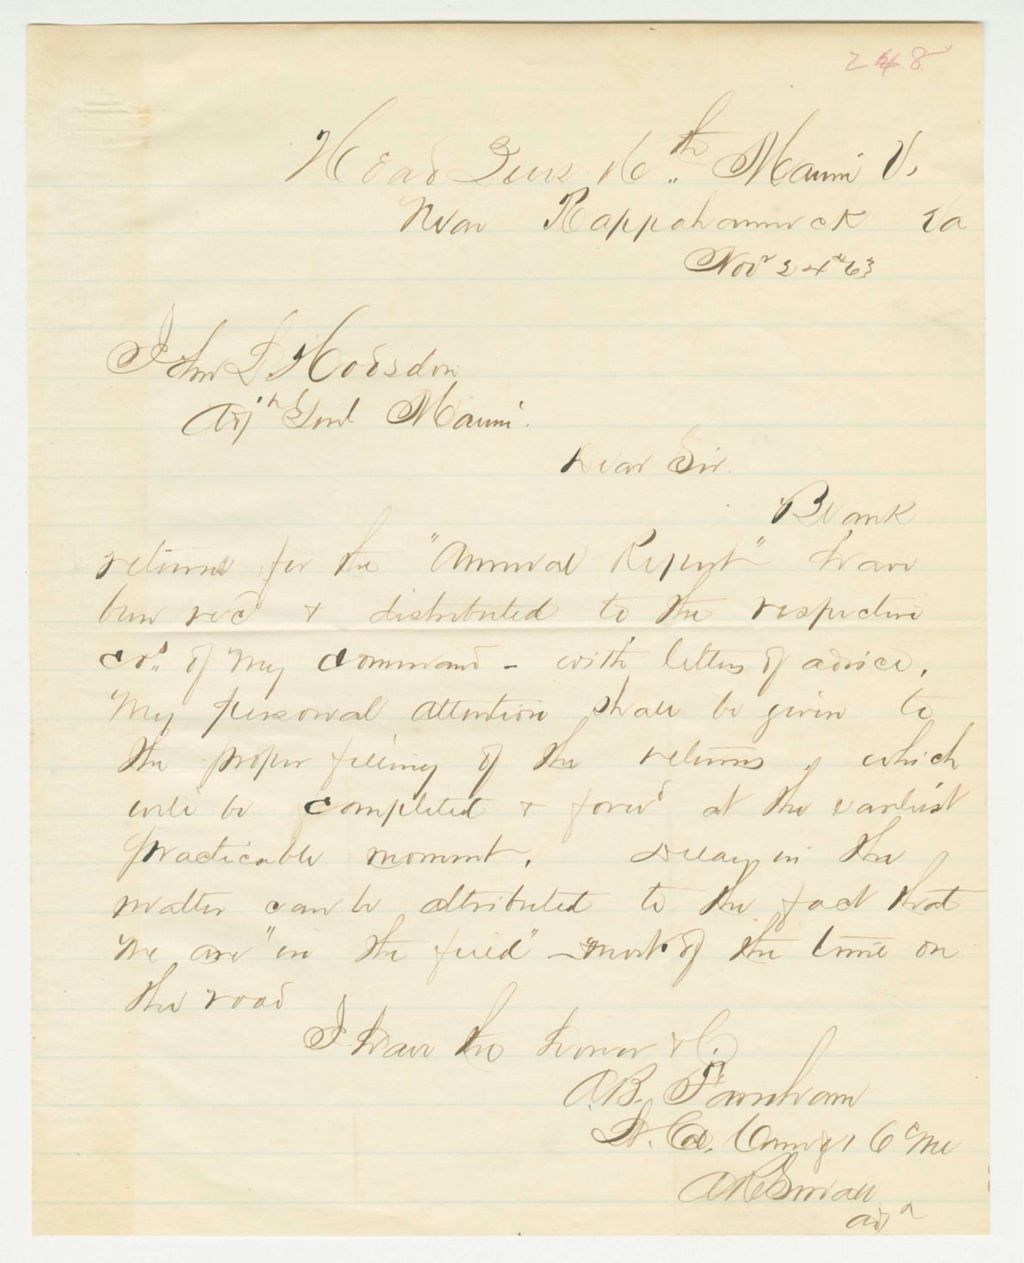 248
Head Qurs 16th Maine V.
Near Rappahannock Va
Nov 24th 63
John L Hodsdon
Adjt Genl Maine.
Dear Sir.
Blank
returns for the "Annual Report" have
been rec'd & distributed to the respective
cos. of my command - with letters of advice.
My personal attention shall be given to
the proper filling of the returns, which
will be completed & forwd at the earliest
practicable moment. Delay in the
matter can be attributed to the fact that
we are "in the field" - most of the time on
the road
I have the honor &c
A.B. Farnham
Lt. Col. Comdg 16th Me
A R Small
adjt